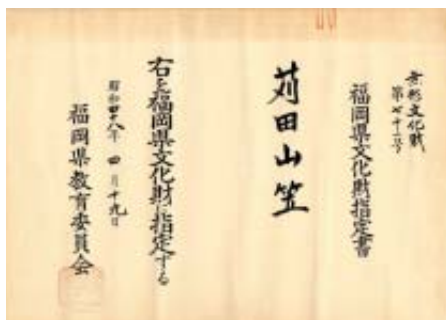 無形文化財
第七十二号
福岡県文化財指定書
苅田山笠
右を福岡県文化財に指定する
昭和四十八年 四月十九日
福岡県教育委員会